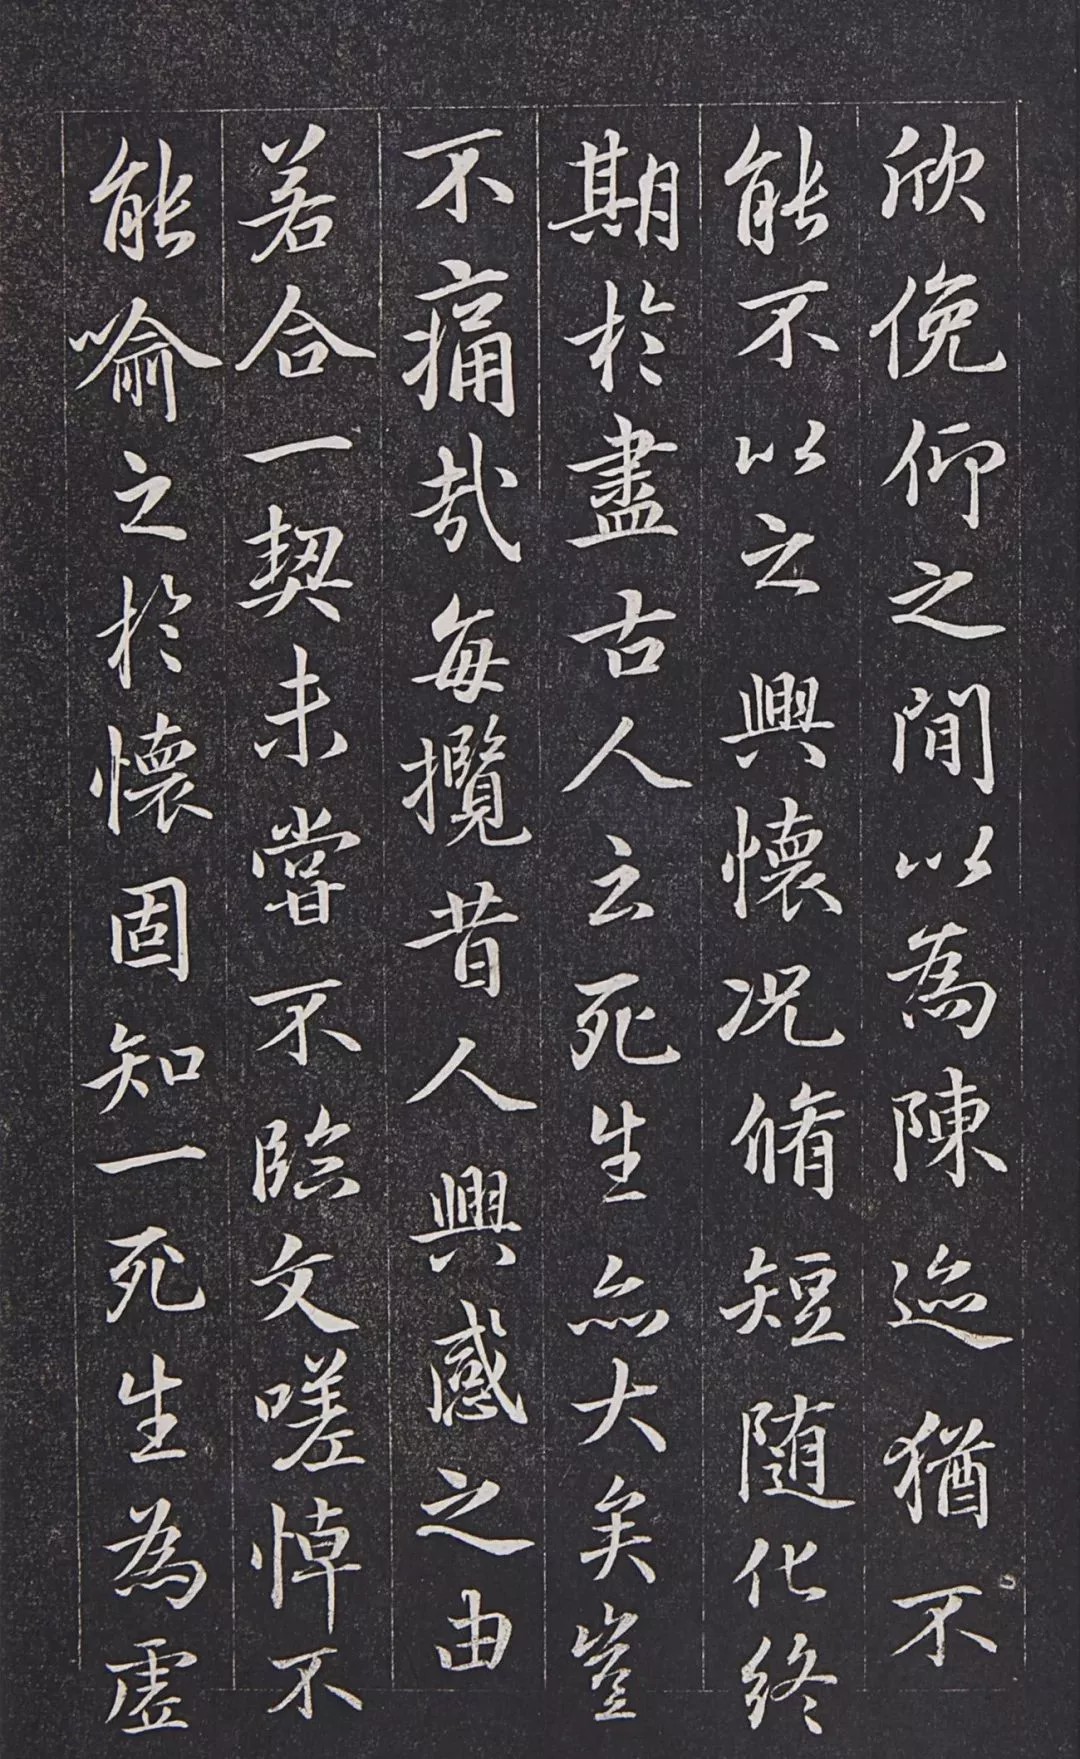 欣俛仰之閒以為陳迹猶不
能不以之興懷況脩短隨化終
期於盡古人云死生亦大矣豈
不痛哉每攬昔人興感之由
若合一契未嘗不臨文嗟悼不
能喻之於懷固知一死生為虛